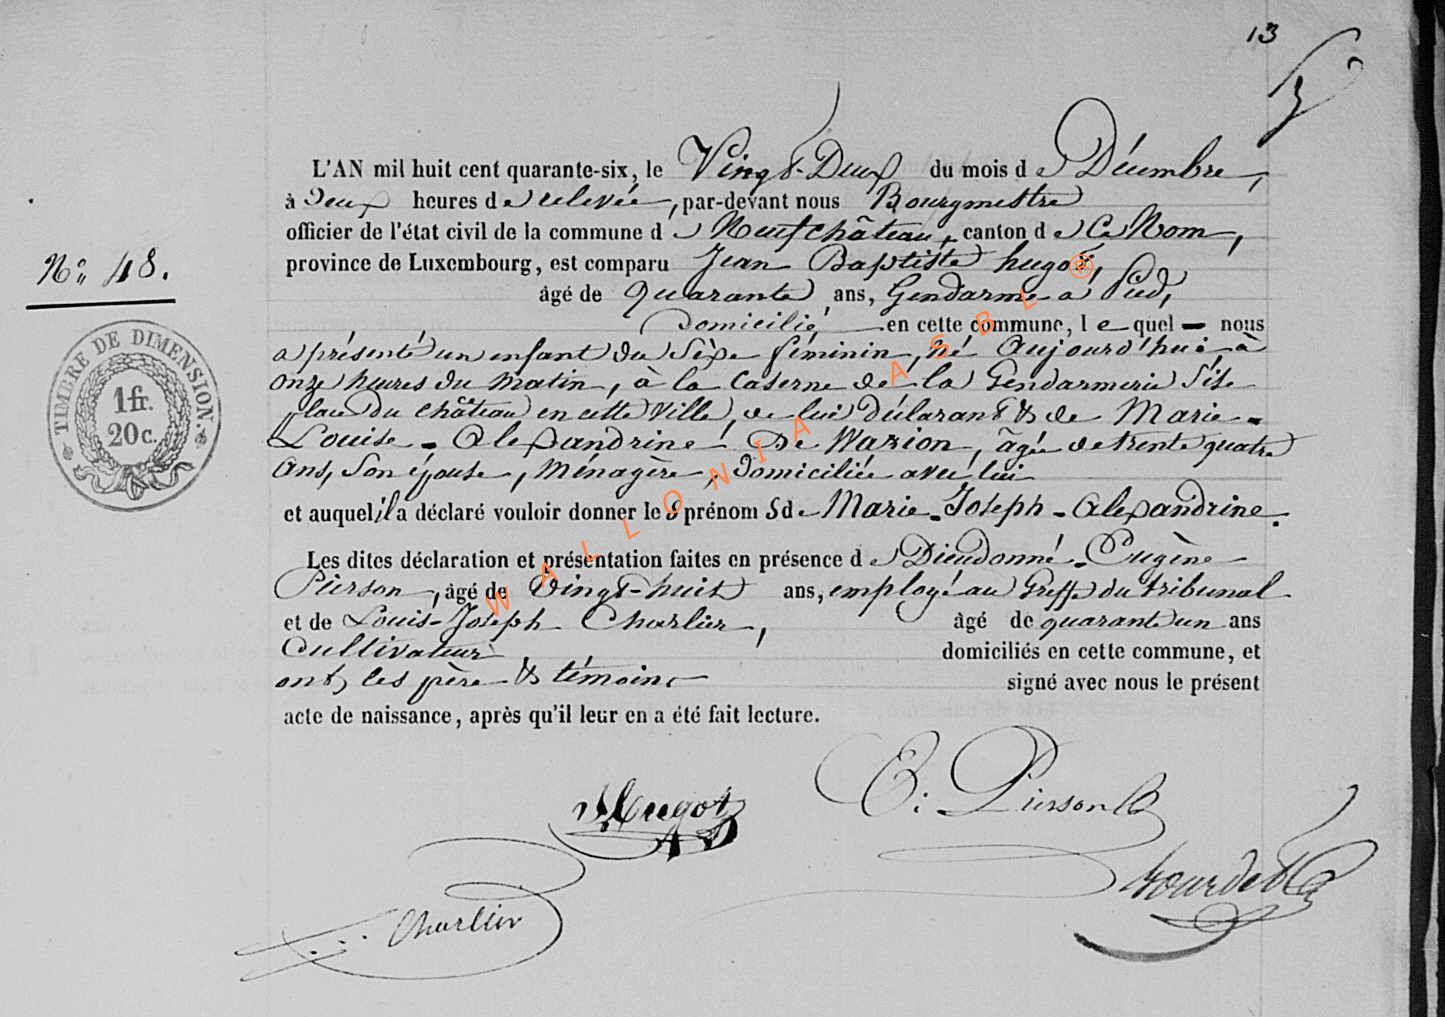 13
L'AN mil huit cent quarante-six, le Vingt-Deux du mois de Décembre,
à Deux heures de relevée, par-devant nous Bourgmestre
officier de l'état civil de la commune de Neufchâteau, canton de Ce Nom,
N° 48.
province de Luxembourg, est comparu Jean Baptiste hugot,
âgé de Quarante ans, Gendarme à Pied,
Domicilié en cette commune, lequel nous
a présenté un enfant du Sèxe féminin, né Aujourd'hui à
onze heures du matin, à la Caserne de la Gendarmerie Sise
place du château en cette Ville, de lui Déclarant & de Marie-
Louise-Alexandrine De Warion, âgée de trente quatre
Ans, Son épouse, Ménagère, domiciliée avec lui
et auquel il a déclaré vouloir donner les prénoms de Marie-Joseph-Alexandrine.
Les dites déclaration et présentation faites en présence de Dieudonné-Eugène
Pierson, âgé de Vingt-huit ans, employé au Greffe du tribunal
et de Louis-Joseph Charlier, âgé de quarante un ans
Cultivateur domiciliés en cette commune, et
ont, les père & témoins signé avec nous le présent
acte de naissance, après qu'il leur en a été fait lecture.
TIMBRE DE DIMENSION.
1 fr.
20 c.
Hugot
E: Pierson
Bourdet
Charlier
WALLONIA ASBL ®